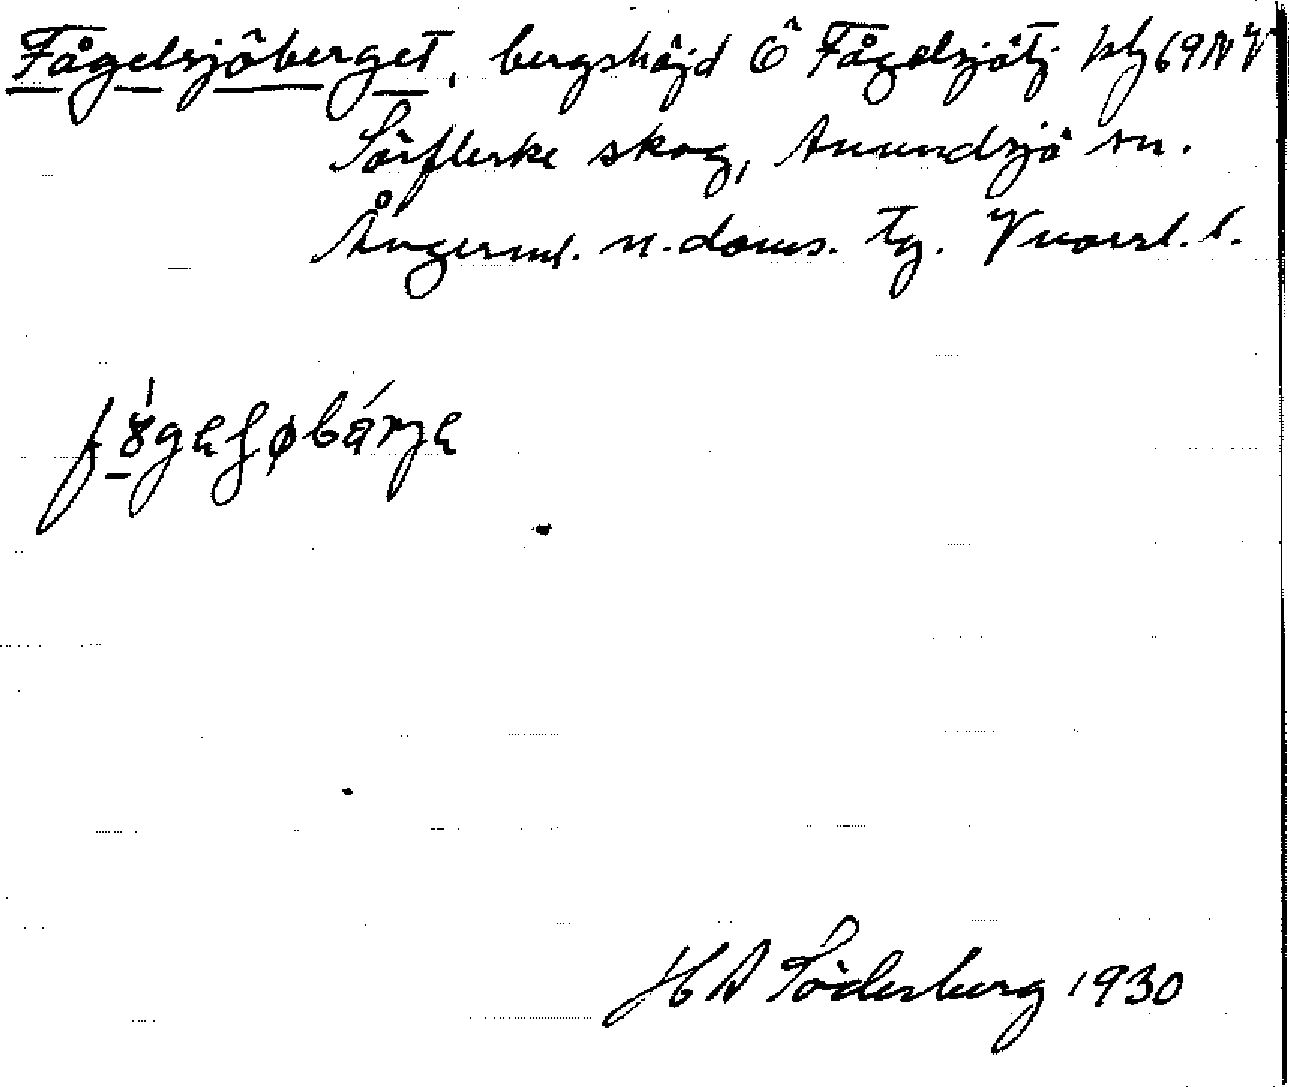 Fågelsjöberget, bergshöjd Ö Fågelsjötj kbl 69 NV
Sörflerke skog, Anundsjö sn.
Ångerml. n. doms. tg. Vnorrl. l.
H A Söderberg 1930